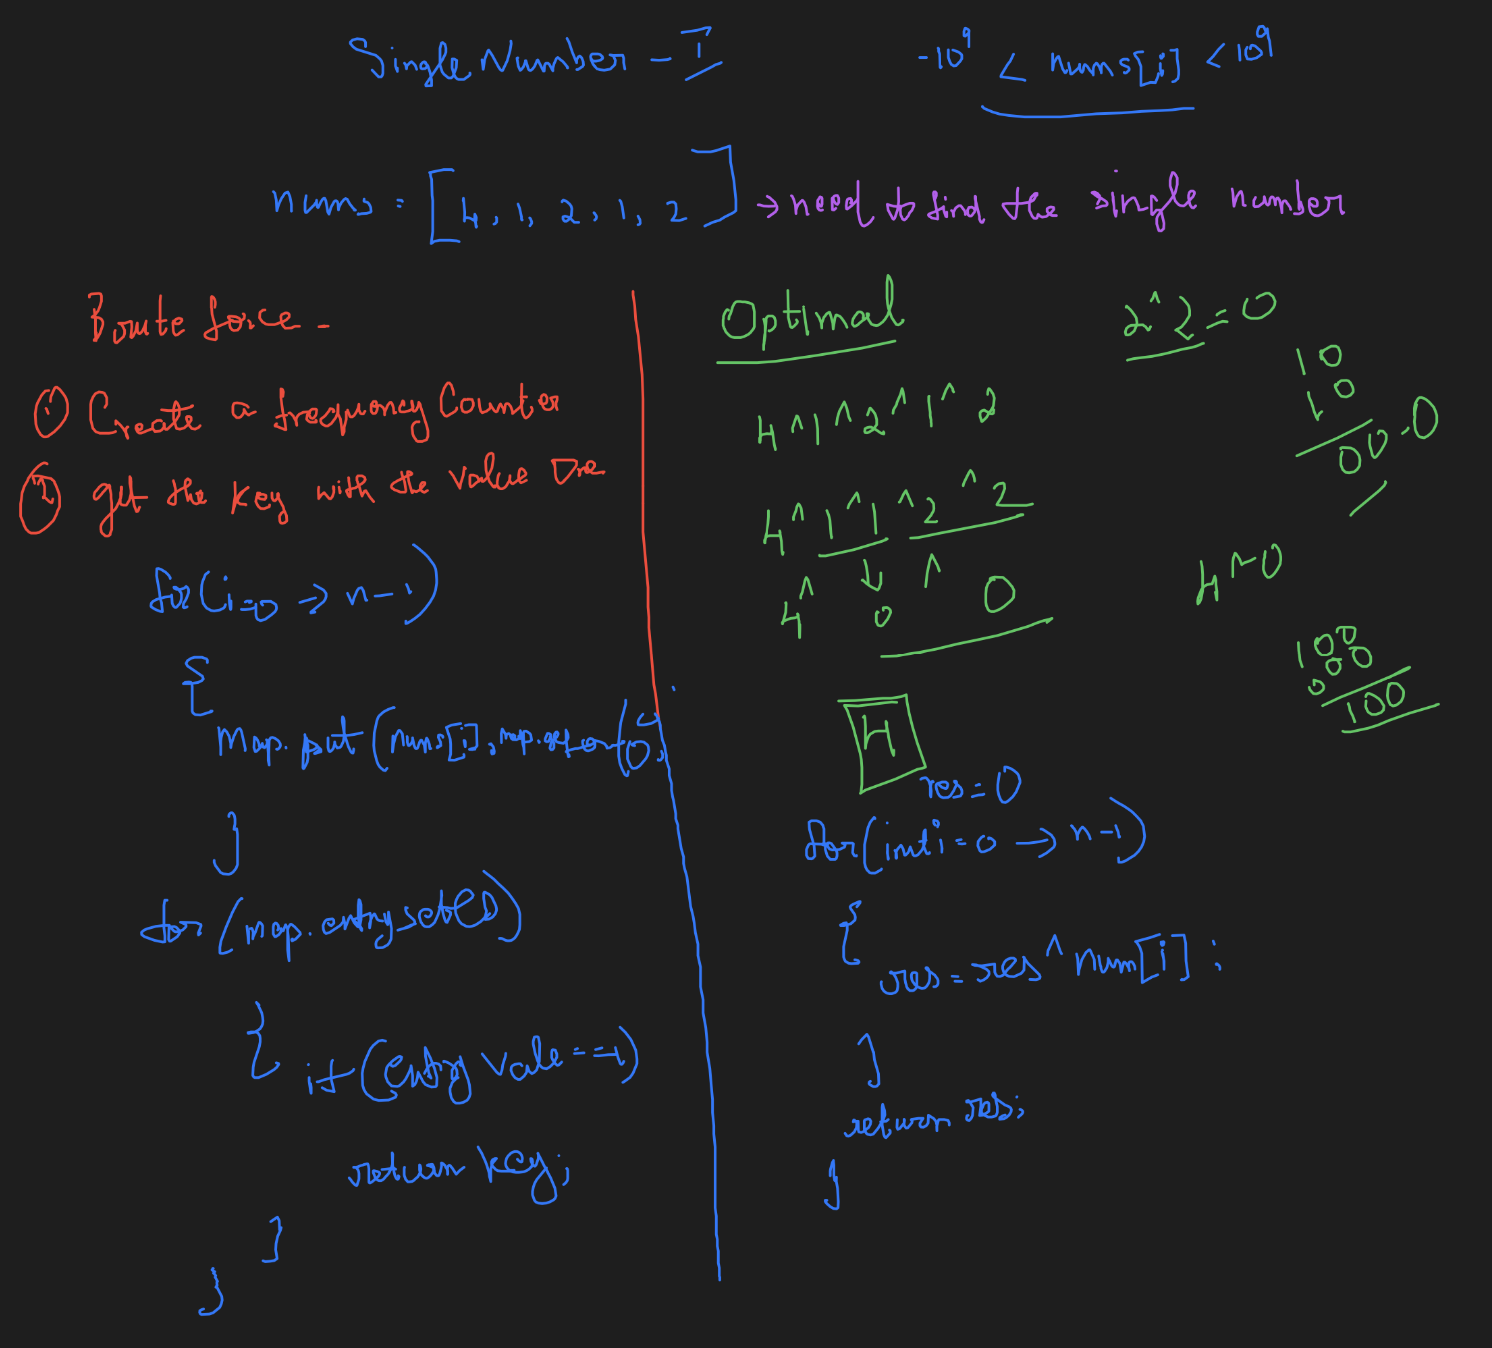 Single Number - I
-10^9 < nums[i] < 10^9
nums = [4, 1, 2, 1, 2] → need to find the single number
Brute force -
① Create a frequency Counter
② get the key with the value One
for(i=0 → n-1)
{
map.put(nums[i], map.get
}
for(map.entryset())
{
if(entry vale==1)
return key;
}
}
Optimal
4^1^2^1^2
4^1^1^2^2
4^ 0 ^ 0
4
2^2=0
10
10
00.0
4^0
100
000
100
res=0
for(int i=0 → n-1)
{
res=res^num[i];
}
return res;
}